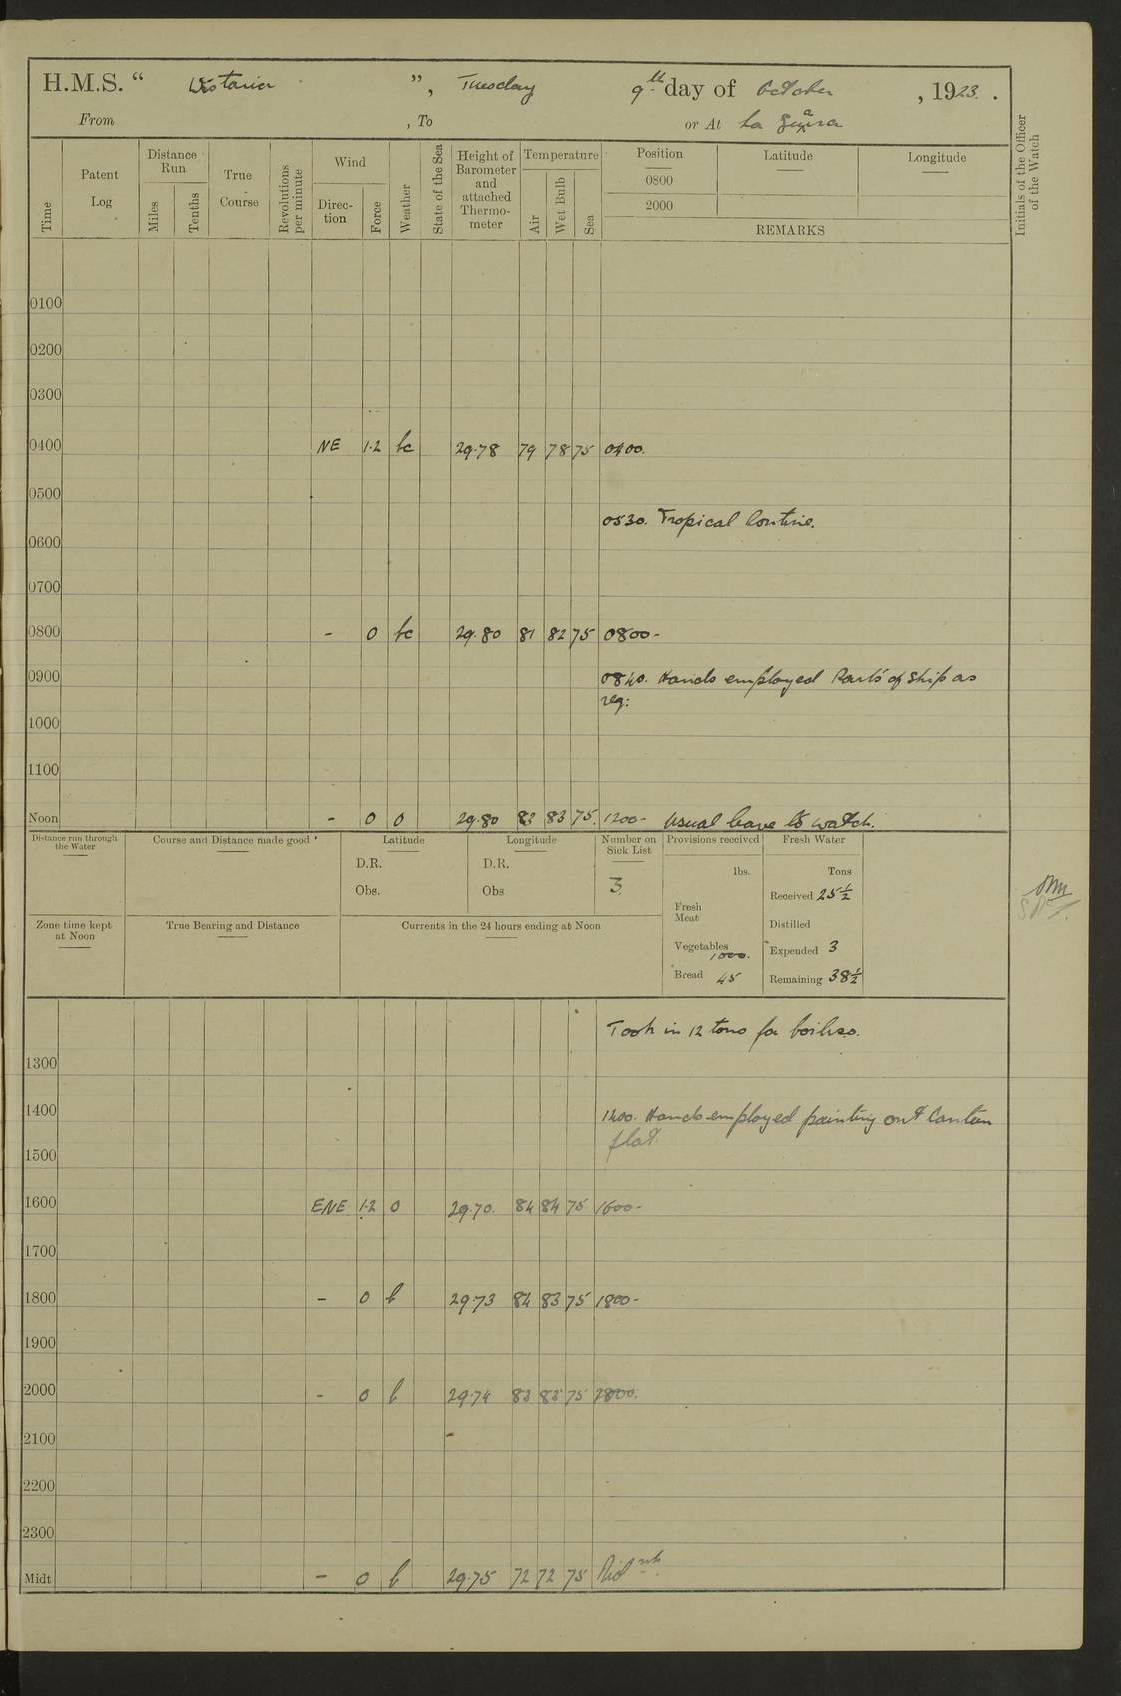 H.M.S. “ Wistaria ”, Tuesday 9th day of October, 1923.
From , To or At La Guaira
Time
Patent Log
Distance Run
Miles
Tenths
True Course
Revolutions per minute
Wind
Direc-tion
Force
Weather
State of the Sea
Height of Barometer and attached Thermo-meter
Temperature
Air
Wet Bulb
Sea
Position Latitude Longitude
0800
2000
REMARKS
Initials of the Officer of the Watch
0100
0200
0300
0400 NE 1·2 bc 29·78 79 78 75 0400.
0500
0530. Tropical Routine.
0600
0700
0800 - 0 bc 29·80 81 82 75 0800-
0900 0840. Hands employed Parts of Ship as
req:
1000
1100
Noon - 0 o 29·80 83 83 75. 1200- Usual leave to watch.
Distance run through the Water
Course and Distance made good
Latitude
D.R.
Obs.
Longitude
D.R.
Obs
Number on Sick List
3
Provisions received
lbs.
Fresh Meat
Vegetables 1000.
Bread 45
Fresh Water
Tons
Received 25½
Distilled
Expended 3
Remaining 38½
Zone time kept at Noon
True Bearing and Distance
Currents in the 24 hours ending at Noon
Took in 12 tons for boilers.
1300
1400 1400. Hands employed painting out Canteen
flat.
1500
1600 ENE 1·2 o 29·70. 84 84 75 1600-
1700
1800 - 0 b 29·73 84 83 75 1800-
1900
2000 - 0 b 29·74 83 83 75 2000.
2100
2200
2300
Midt - 0 b 29·75 72 72 75 Midnt.